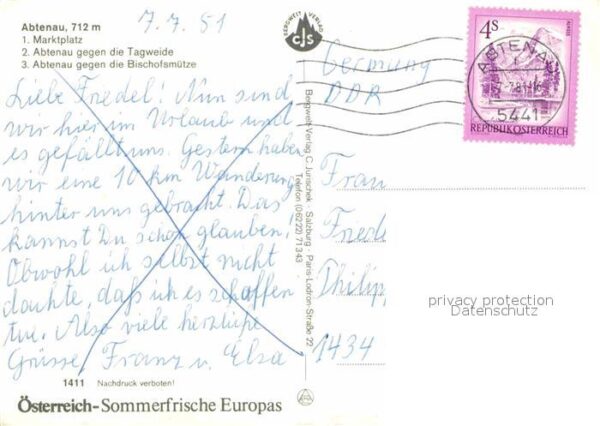 Abtenau, 712 m
1. Marktplatz
2. Abtenau gegen die Tagweide
3. Abtenau gegen die Bischofsmütze
7.7.81
Liebe Friedel! Nun sind
wir hier im Urlaub und
es gefällt uns. Gestern haben
wir eine 10 km Wanderung
hinter uns gebracht. Das
kannst Du schon glauben!
Obwohl ich selbst nicht
dachte, daß ich es schaffen
tue. Also viele herzliche
Grüsse Franz u. Elsa
1411 Nachdruck verboten!
Österreich-Sommerfrische Europas
BERGWELT VERLAG
cJs
Bergwelt-Verlag C. Jurischek · Salzburg · Paris-Lodron-Straße 22
Telefon (06222) 71343
Germany
DDR
4S
ABTENAU
5441
REPUBLIK ÖSTERREICH
Frau
Friede
Philipp
1434
privacy protection
Datenschutz